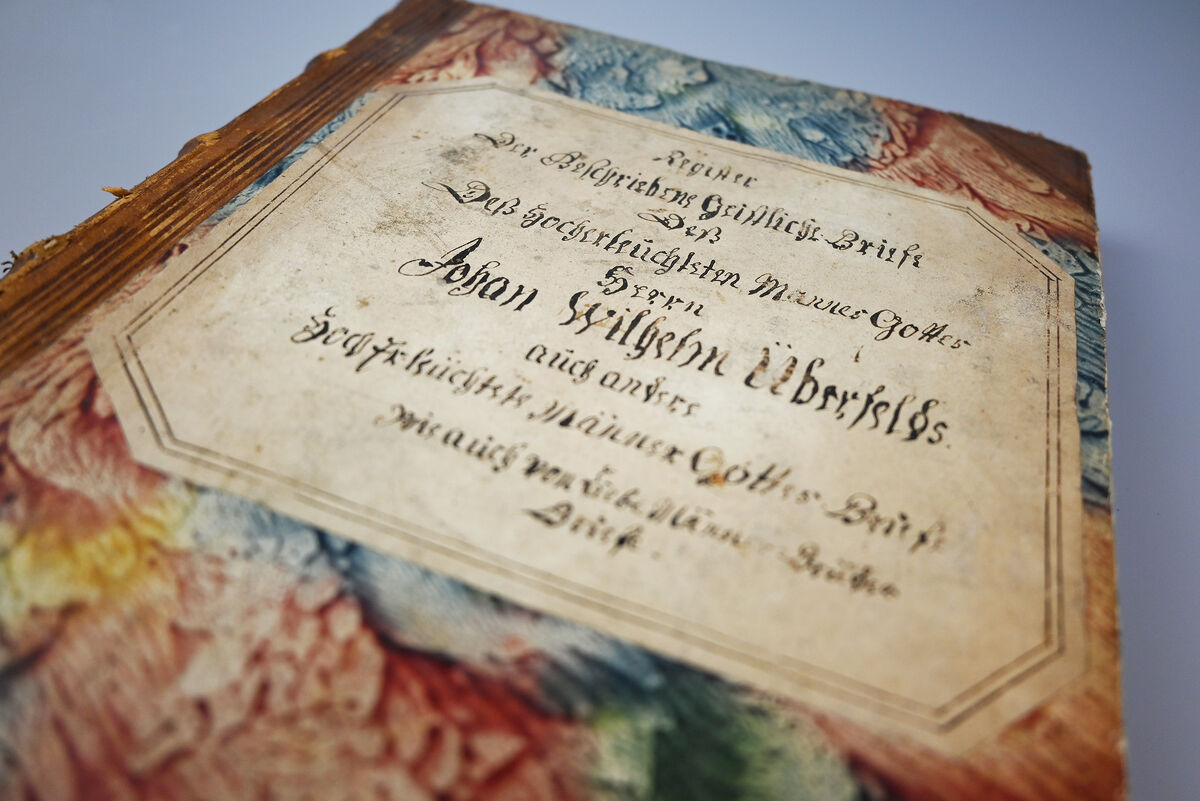 Register
Der Beschriebene Geistliche Briefe
Deß
Deß Hocherleuchteten Mannes Gottes
Herrn
Johan Wilhelm Überfelds.
auch andere
Hoch Erleuchtete Männer Gottes Briefe
wie auch von Liebe Männer Brüder
Briefe.